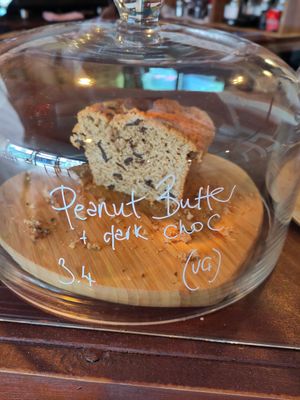 Peanut Butter
+ dark choc
3.4
(VG)